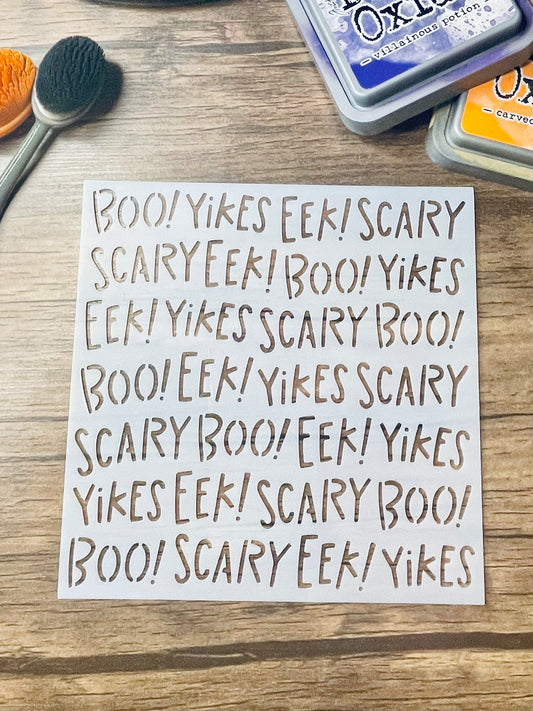 Oxi
– villainous potion
Ox
– carved
BOO! YiKES EEK! SCARY
SCARY EEK! BOO! YiKES
EEK! YiKES SCARY BOO!
BOO! EEK! YiKES SCARY
SCARY BOO! EEK! YiKES
YiKES EEK! SCARY BOO!
BOO! SCARY EEK! YiKES